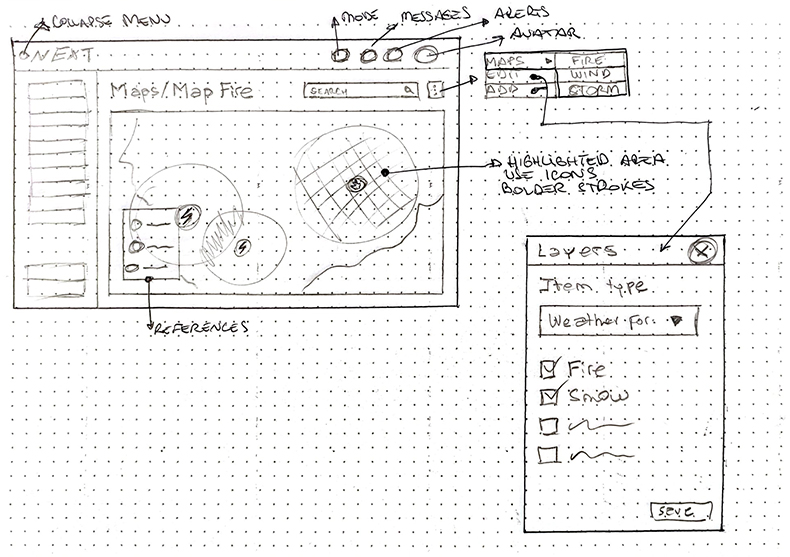 COLLAPSE MENU
MODE
MESSAGES
ALERTS
AVATAR
NEXT
MAPS
FIRE
EDIT
WIND
ADD
STORM
Maps/Map Fire
SEARCH
HIGHLIGHTED AREA
USE ICONS
BOLDER STROKES
REFERENCES
Layers
X
Item type
Weather For.
Fire
Snow
SAVE